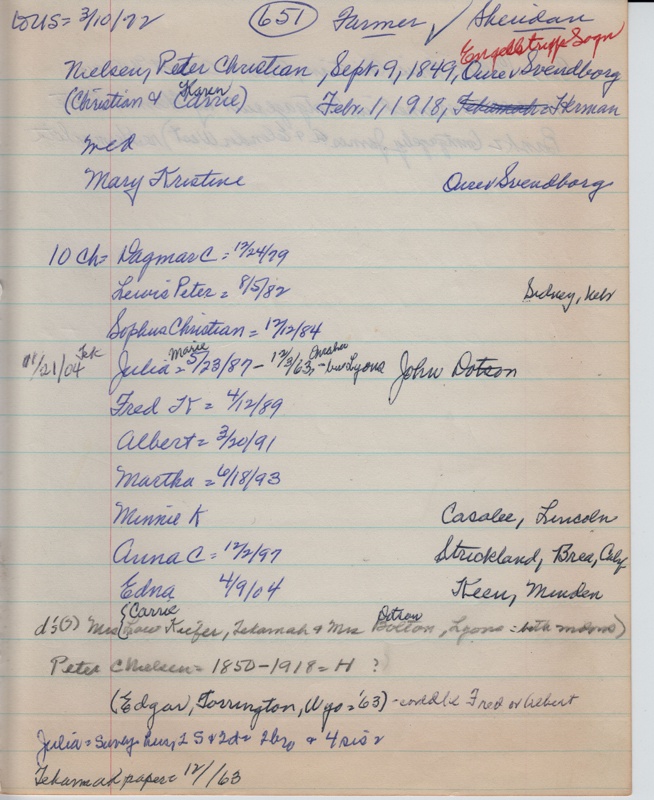 to US = 3/10/72 651 Farmer ✓ Sheridan
Engelstrupp Sogn
Nielsen, Peter Christian, Sept. 9, 1849, Ourev Svendborg
Karen
(Christian & Carrie) Febr. 1, 1918, Tekamah = Herman
mcd
Mary Kristine Ourev Svendborg
10 Ch = Dagmar C = 12/24/79
Lewis Peter = 8/5/82 Sidney, Nebr
Sophus Christian = 12/12/84
11/21/04 Tek Julia Marie = 5/23/87 - 12/3/63, Omaha - bur Lyons John Dotson
Fred K = 4/12/89
Albert = 3/20/91
Martha = 6/18/93
Minnie K Casalee, Lincoln
Anna C = 12/2/97 Strickland, Brea, Calif
Edna 4/9/04 Keen, Minden
Carrie Dotson
d's(?) Mrs (Lou Keifer, Tekamah & Mrs Bolton, Lyons = both moms)
Peter C Nielsen = 1850-1918 = H ?
(Edgar, Torrington, Wyo = '63) - could be Fred or Albert
Julia = Surv = hus, 2 S & 2 d = 2 bro & 4 sis
Tekamah paper = 12/ /63